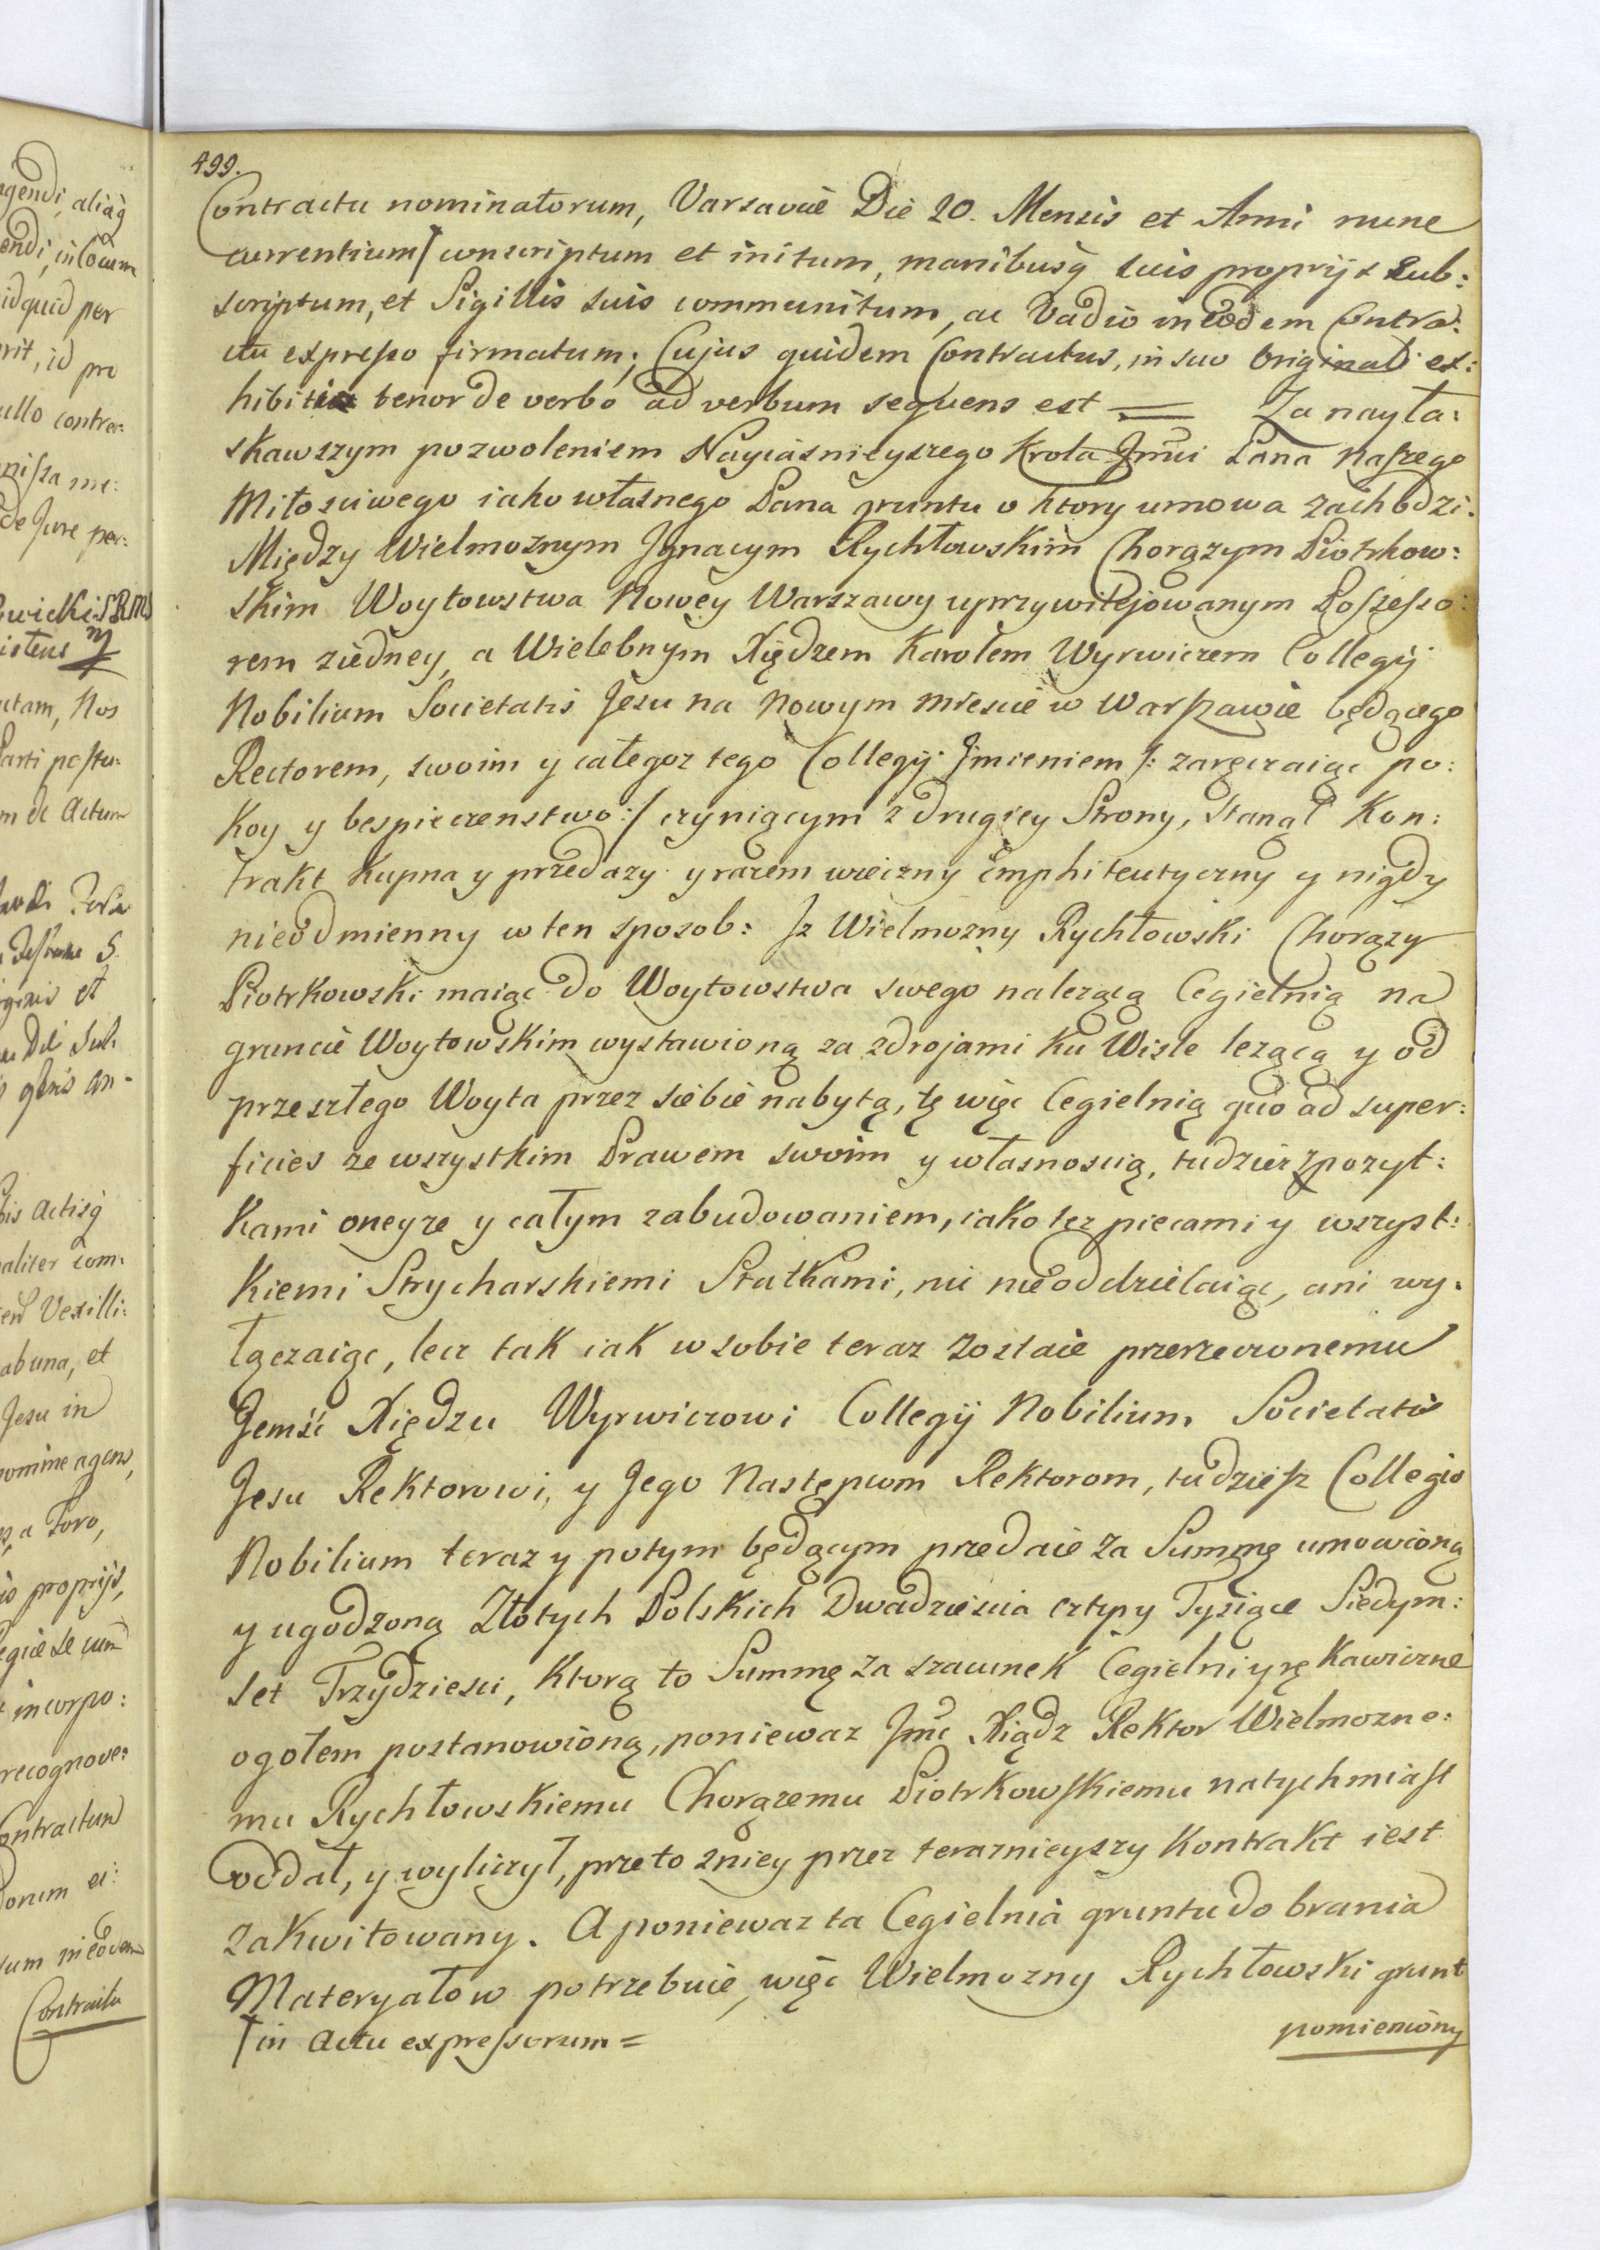 499.
Contractu nominatorum, Varsaviæ Die 20. Mensis et Anni nunc
currentium/ conscriptum et initum, manibusq̃ suis proprijs sub:
scriptum, et Sigillis suis communitum, ac Vadio in eodem Contra:
ctu expresso firmatum; Cujus quidem Contractus, in suo Originali ex:
hibiti tenor de verbo ad verbum sequens est = Za nayła:
skawszym pozwoleniem Nayiasnieyszego Krola Jm̃ci Pana Naszego
Miłosciwego iako własnego Pana gruntu o ktory umowa zachodzi.
Między Wielmoznym Jgnacym Rychłowskim Chorązym Piotrkow:
skim Woytowstwa Nowey Warszawy uprzywilejowanym Possesso:
rem ziedney, a Wielebnym Xiędzem Karolem Wyrwiczem Collegij
Nobilium Societatis Jesu na Nowym Miescie w Warszawie będącego
Rectorem, swoim y całegoz tego Collegij Jmieniem /: zaręczaiąc po:
koy y bespieczenstwo :/ czyniącym z drugiey Strony, Stanął Kon:
trakt Kupna y przedazy y razem wieczny Emphiteutyczny y nigdy
nieodmienny w ten sposob: Jz Wielmozny Rychłowski Chorązy
Piotrkowski maiąc do Woytowstwa swego nalezącą Cegielnią na
gruncie Woytowskim wystawioną za zdrojami ku Wisle lezącą y od
przeszłego Woyta przez siebie nabytą, tę więc Cegielnią quo ad super:
ficies ze wszystkim Prawem swoim y własnoscią, tudziez z pozyt:
kami oneyze y całym zabudowaniem, iako tez piecami y wszyst:
kiemi Strycharskiemi Statkami, nic nieoddzielaiąc, ani wy.
łączaiąc, lecz tak iak w sobie teraz zostaie przerzeczonemu
Jemść Xiędzu Wyrwiczowi Collegij Nobilium Societatis
Jesu Rektorowi, y Jego Następcom Rektorom, tudziesz Collegio
Nobilium teraz y potym będącym przedaie za Summę umowioną
y ugodzoną Złotych Polskich Dwadziescia cztery Tysiące Siedym:
set Trzydziesci, Ktorą to Summę za szacunek Cegielni y rękawiczne
ogołem postanowioną, poniewaz Jm̃c Xiądz Rektor Wielmozne:
mu Rychłowskiemu Chorązemu Piotrkowskiemu natychmiast
oddał, y wyliczył, przeto zniey przez terazneyszy Kontrakt iest
zakwitowany. A poniewaz ta Cegielnia gruntu do brania
Materyałow potrzebuie, więc Wielmozny Rychłowski grunt
/in Actu expressorum =
pomieniony